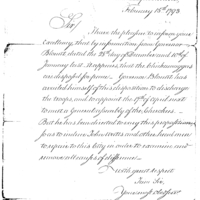 February 18th 1793
Sir,
I have the pleasure to inform your
Excellency, that by information from Governor
Blount, dated the 23d of December and 10th of
January last, it appears that the chickamoggas
are disposed for peace. Governor Blount has
availed himself of this disposition to discharge
the troops, and to appoint the 17th of April next
to meet a general assembly of the Cherokees
But he has been directed to vary this proposition
so as to induce John Watts and other head men
to repair to this city in order to examine and
remove all causes of difference.
With great respect
I am Sir,
Your most obedient